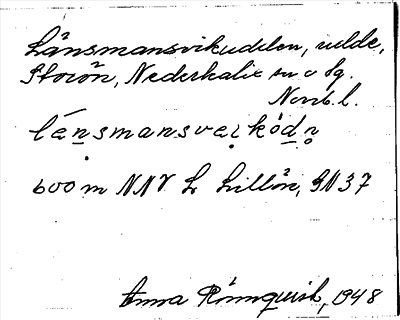 Länsmansvikudden, udde,
Storön, Nederkalix sn o fg.
Norrb. l.
lénsmansveɪkódn̥
600 m NNV L Lillön, SN 37
Anna Rönnquist, 1948